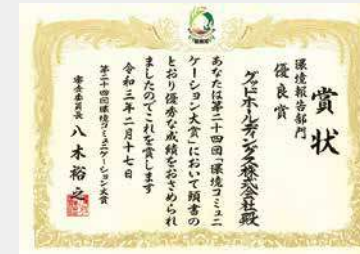 賞状
環境報告部門
優良賞
グッドホールディングス株式会社殿
あなたは第二十四回「環境コミュニ
ケーション大賞」において頭書の
とおり優秀な成績をおさめられ
ましたのでこれを賞します
令和三年二月十七日
第二十四回環境コミュニケーション大賞
審査委員長 八木裕之